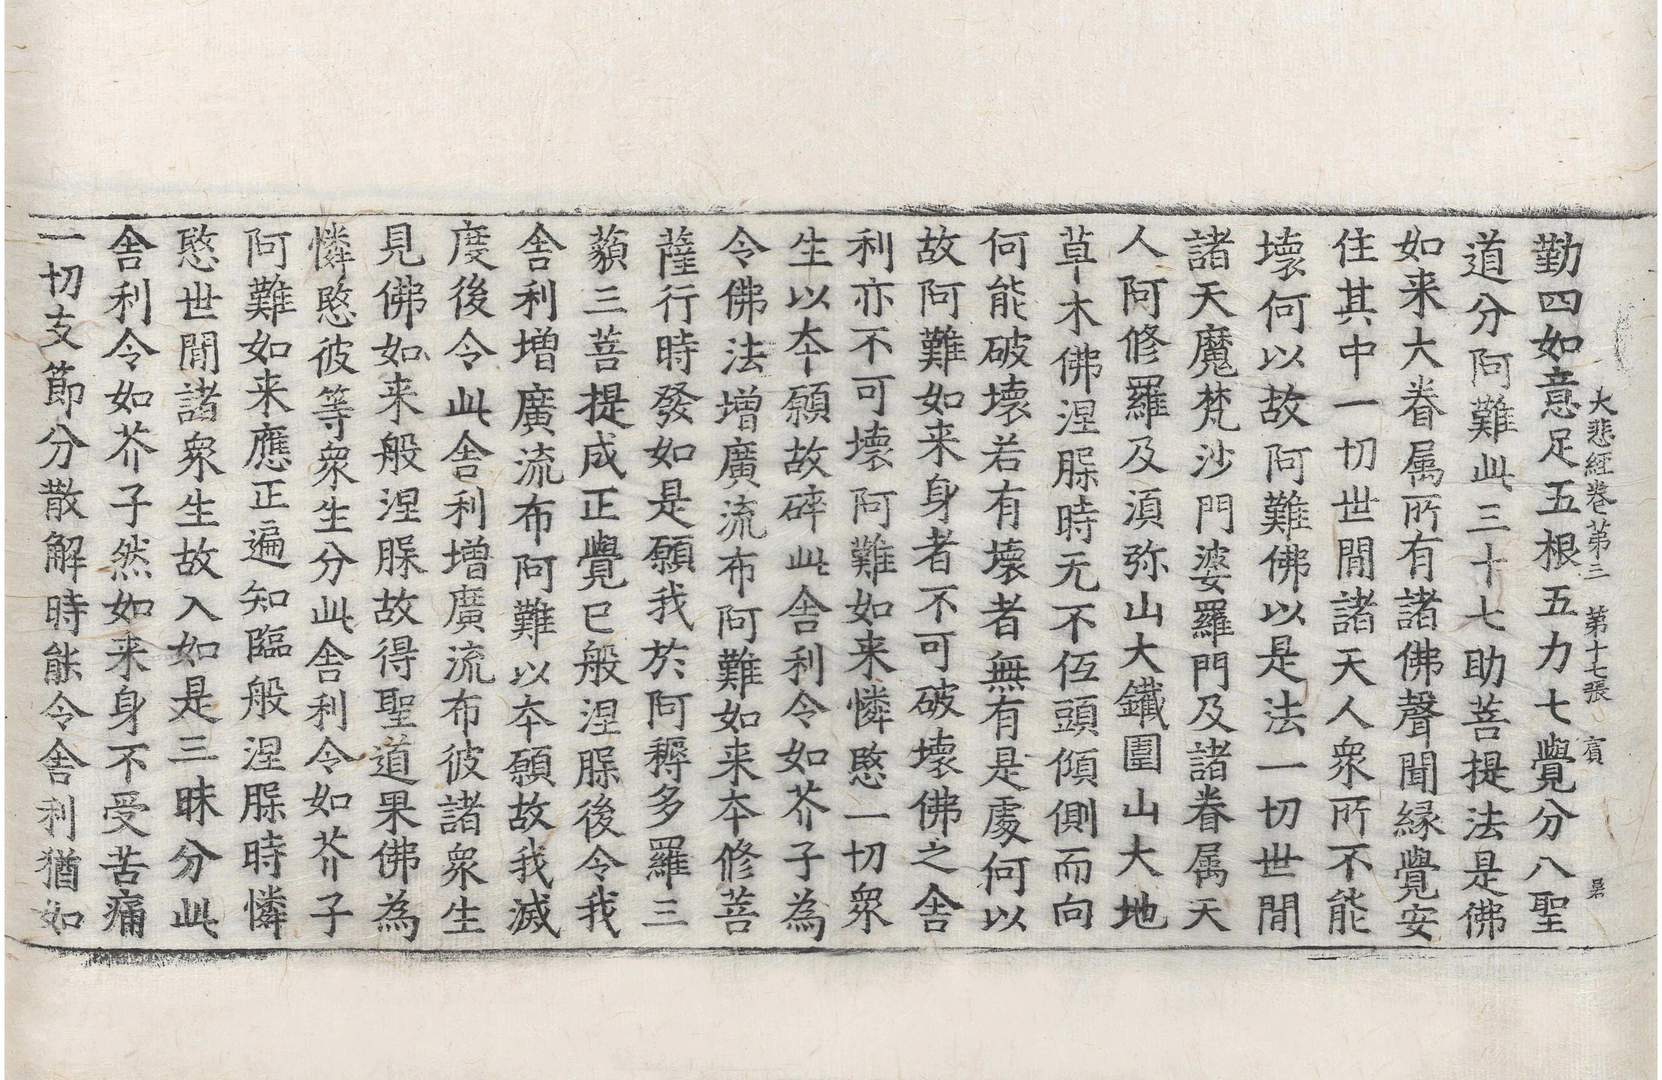 大悲経卷第三 第十七張 賓 㒒
勤四如意足五根五力七覺分八聖
道分阿難此三十七助菩提法是佛
如来大眷属所有諸佛聲聞縁覺安
住其中一切世間諸天人衆所不能
壞何以故阿難佛以是法一切世間
諸天魔梵沙門婆羅門及諸眷属天
人阿修羅及湏弥山大鐵圍山大地
草木佛涅槃時无不低頭傾側而向
何能破壞若有壞者無有是處何以
故阿難如来身者不可破壞佛之舎
利亦不可壞阿難如来憐愍一切衆
生以夲願故碎此舎利令如芥子為
令佛法増廣流布阿難如来夲修菩
薩行時發如是願我於阿耨多羅三
藐三菩提成正覺已般涅槃後令我
舎利増廣流布阿難以夲願故我滅
度後令此舎利増廣流布彼諸衆生
見佛如来般涅槃故得聖道果佛為
憐愍彼等衆生分此舎利令如芥子
阿難如来應正遍知臨般涅槃時憐
愍世間諸衆生故入如是三昧分此
舎利令如芥子然如来身不受苦痛
一切支節分散解時能令舎利猶如